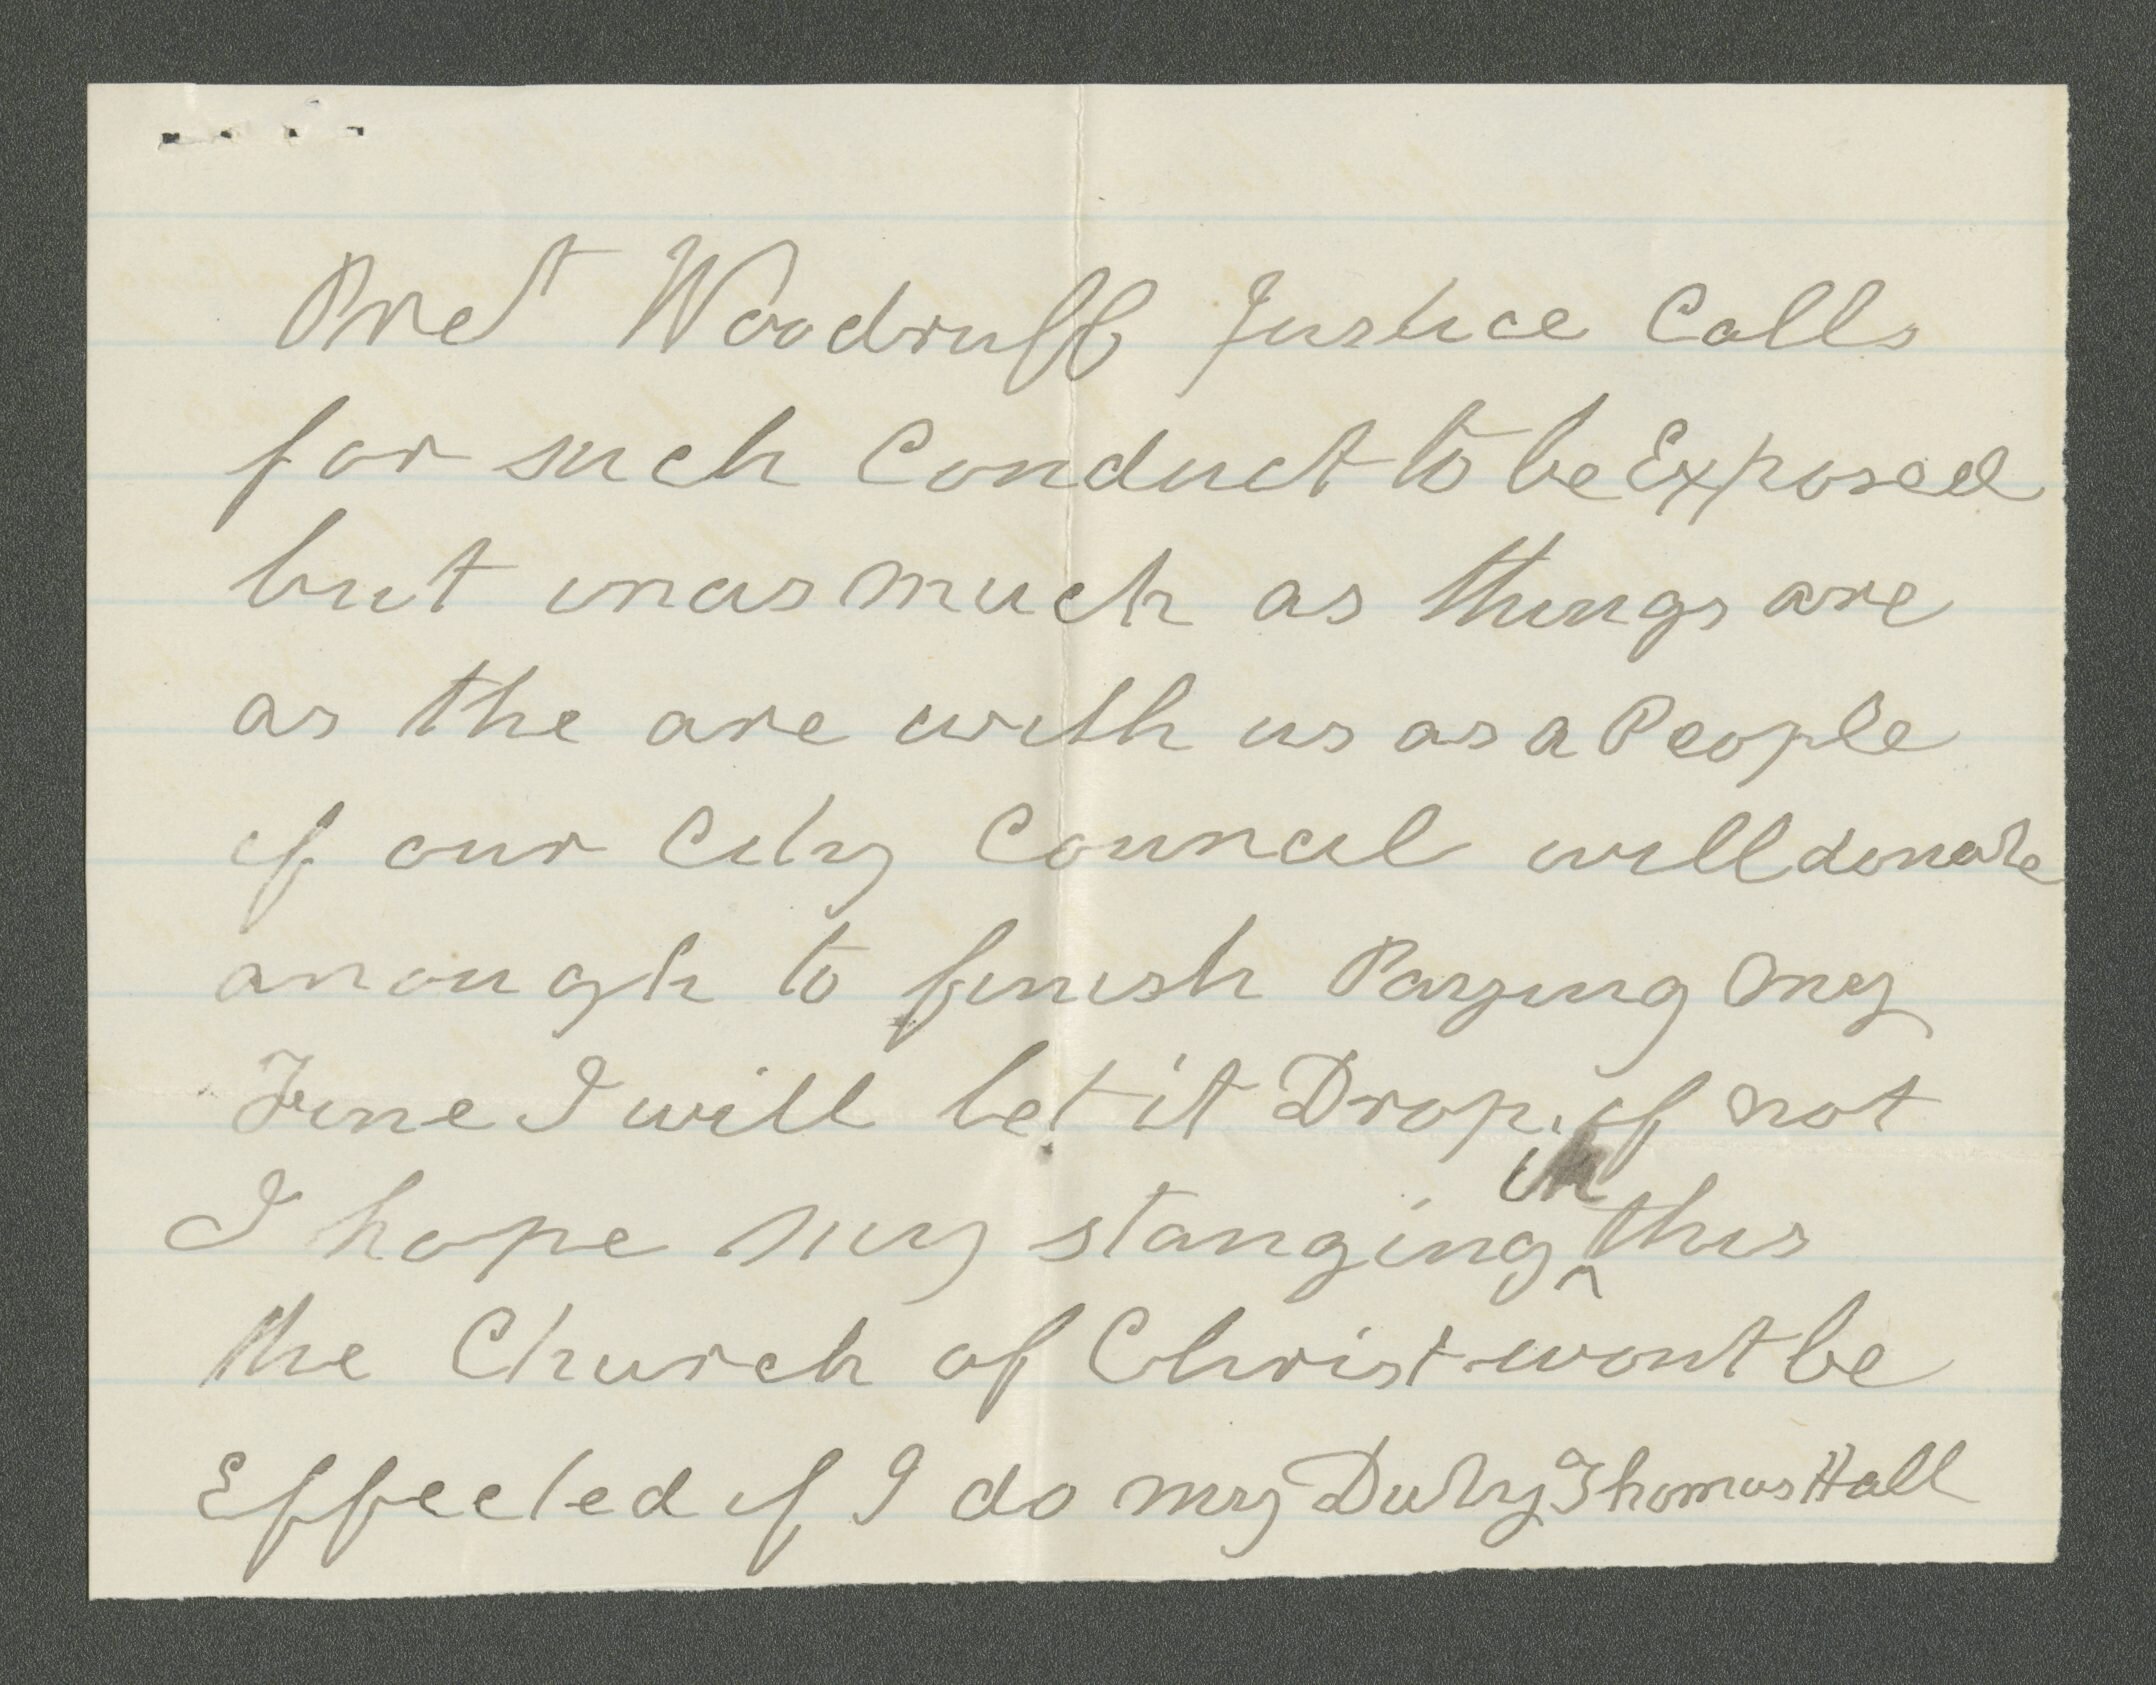 Pres^t Woodruff Justice Calls
for such Conduct to be Exposed
but inasmuch as things are
as the are with us as a People
if our City Council will donate
anough to finish Paying my
Fine I will let it Drop. if not
I hope my stanging in this
the Church of Christ wont be
Effected if I do my Duty Thomas Hall